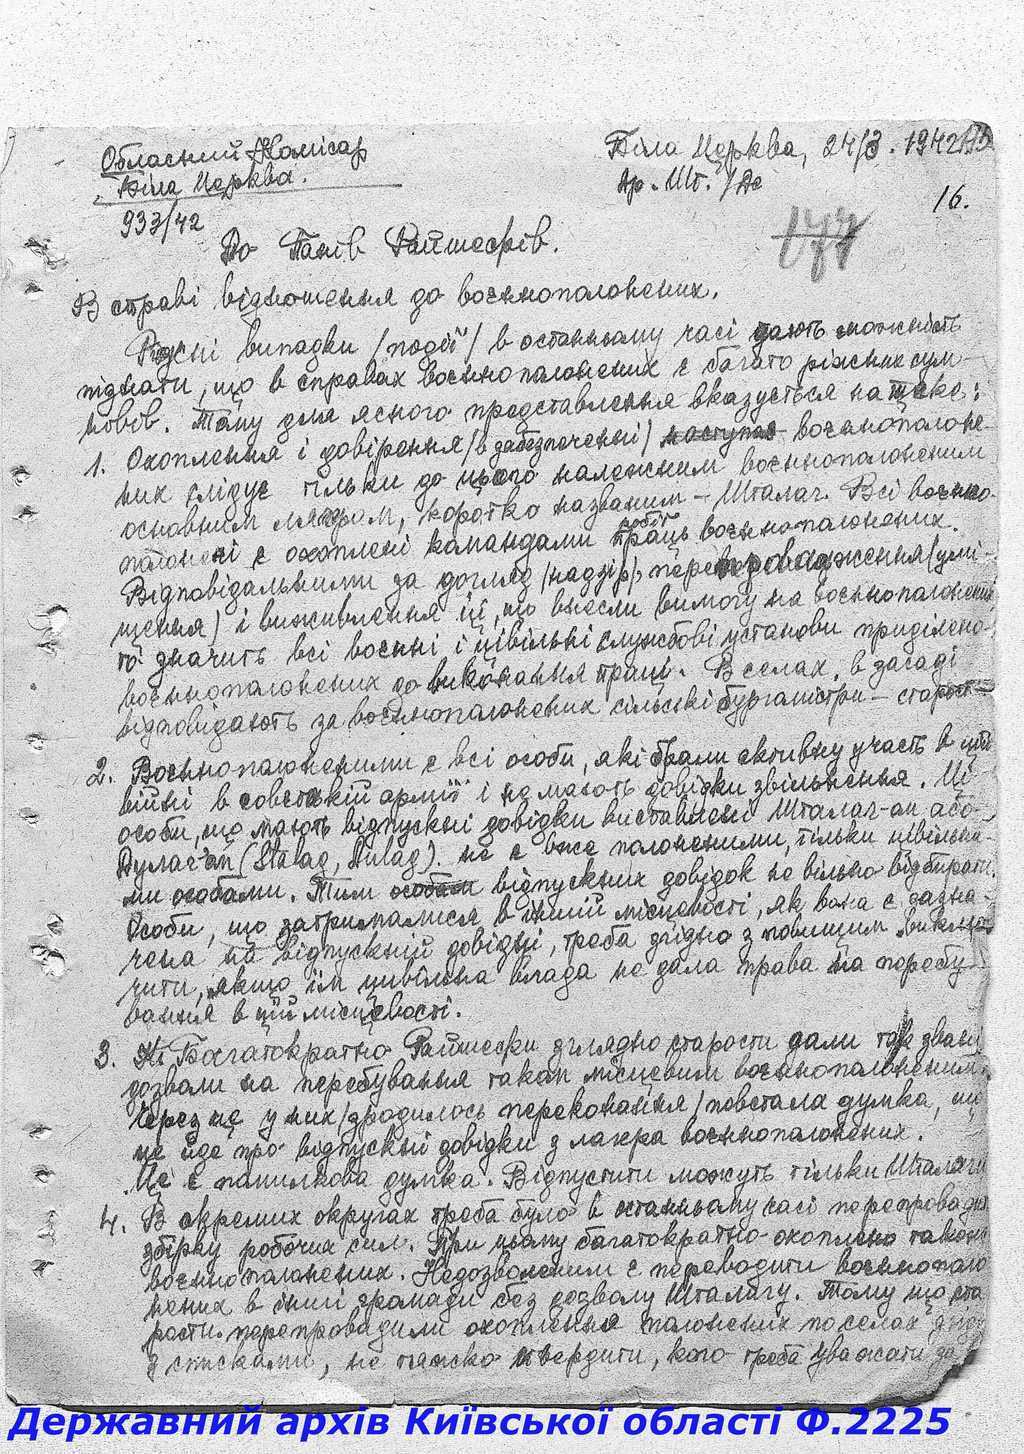 Обласний Комісар
Біла Церква.
933/42
Біла Церква, 24/3. 1942
Ар. Шт./Де
16.
177
До Панів Райшефів.
В справі відношення до воєннополонених.
Різні випадки /події/ в останньому часі дають можність
пізнати, що в справах воєннополонених є багато ріжних сум-
нівів. Тому для ясного представлення вказується на таке:
1. Охоплення і довірення /в забезпеченні/ наступає воєннополоне-
них слідує тільки до цього належним воєннополоненим
основним лягром, коротко названим – Шталаг. Всі воєнно-
полонені є охоплені командами робіт праць воєннополонених.
Відповідальними за догляд /надзір/, перепровадження /умі-
щення/ і виживлення ті, що внесли вимогу на воєннополонених
то значить всі воєнні і цівільні службові установи приділено
воєннополонених до виконання праці. В селах, в засаді
відповідають за воєннополонених сільські бургмістри – старост
2. Воєннополоненими є всі особи, які брали активну участь в цій
війні в совєтській армії і не мають довідки звільнення. Ці
особи, що мають відпускні довідки виставлені Шталаг-ан або
Дулаг-ан (Stalag, Dulag). не є вже полоненими, тільки цівільни-
ми особами. Тим особам відпускних довідок не вільно відбирати.
Особи, що затрималися в іншій місцевості, як вона є зазна-
чена на відпускній довідці, треба згідно з повищим виклю
чити, якщо їм цивільна влада не дала права на перебу
вання в цій місцевості.
3. Багатократно Райшефи зглядно старости дали так звані
дозволи на перебування таким місцевим воєннополоненим.
Через це у них /зродилось переконання/ повстала думка, що
це йде про відпускні довідки з лагера воєннополонених.
Це є помилкова думка. Відпустити можуть тільки Шталаги
4. В окремих округах треба було в останньому часі перепровадит
збірку робочих сил. При цьому багатократно охоплено також
воєннополонених. Недозволеним є переводити воєннополо
нених в інші громади без дозволу Шталагу. Тому що ста
рости перепровадили охоплення полонених по селах згідно
з списками, не тяжко твердити, кого треба уважати за
Державний архів Київської області Ф.2225